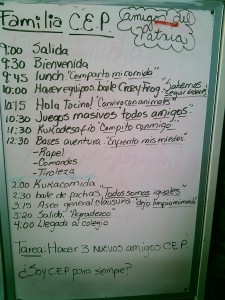 Familia C.E.P.
amigos del
9:00 Salida
9:30 Bienvenida
9:45 lunch "Comparto mi comida"
10:00 Hacer equipos. baile Crazy Frog "Sabemos seguir ordenes"
10:15 Hola Tocino! "Convivo con animales"
10:30 Juegos masivos todos amigos"
11:30 Kukadesafio "Compito conmigo"
12:30 Bases aventura. "Enfrento mis miedos"
-Rapel
-Comandos
-Tiroleza
2:00 Kukacomida
2:30 baile de pachas "todos somos iguales"
3:15 Aseo general, clausura "dejo limpio
3:20 Salida "Agradezco"
4:00 Llegada al colegio
Tarea: Hacer 3 nuevos amigos C.E.P.
¿Soy C.E.P para siempre?